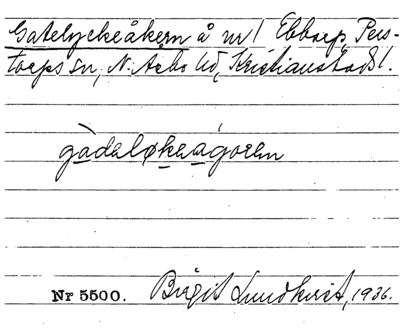 Gatelyckeåkern å nr 1 Ebbarp, Pers-
torps sn, N. Åsbo hd, Kristianstads l.
gàdaløkeagoren
Nr 5500. Birgit Lundkvist, 1936.